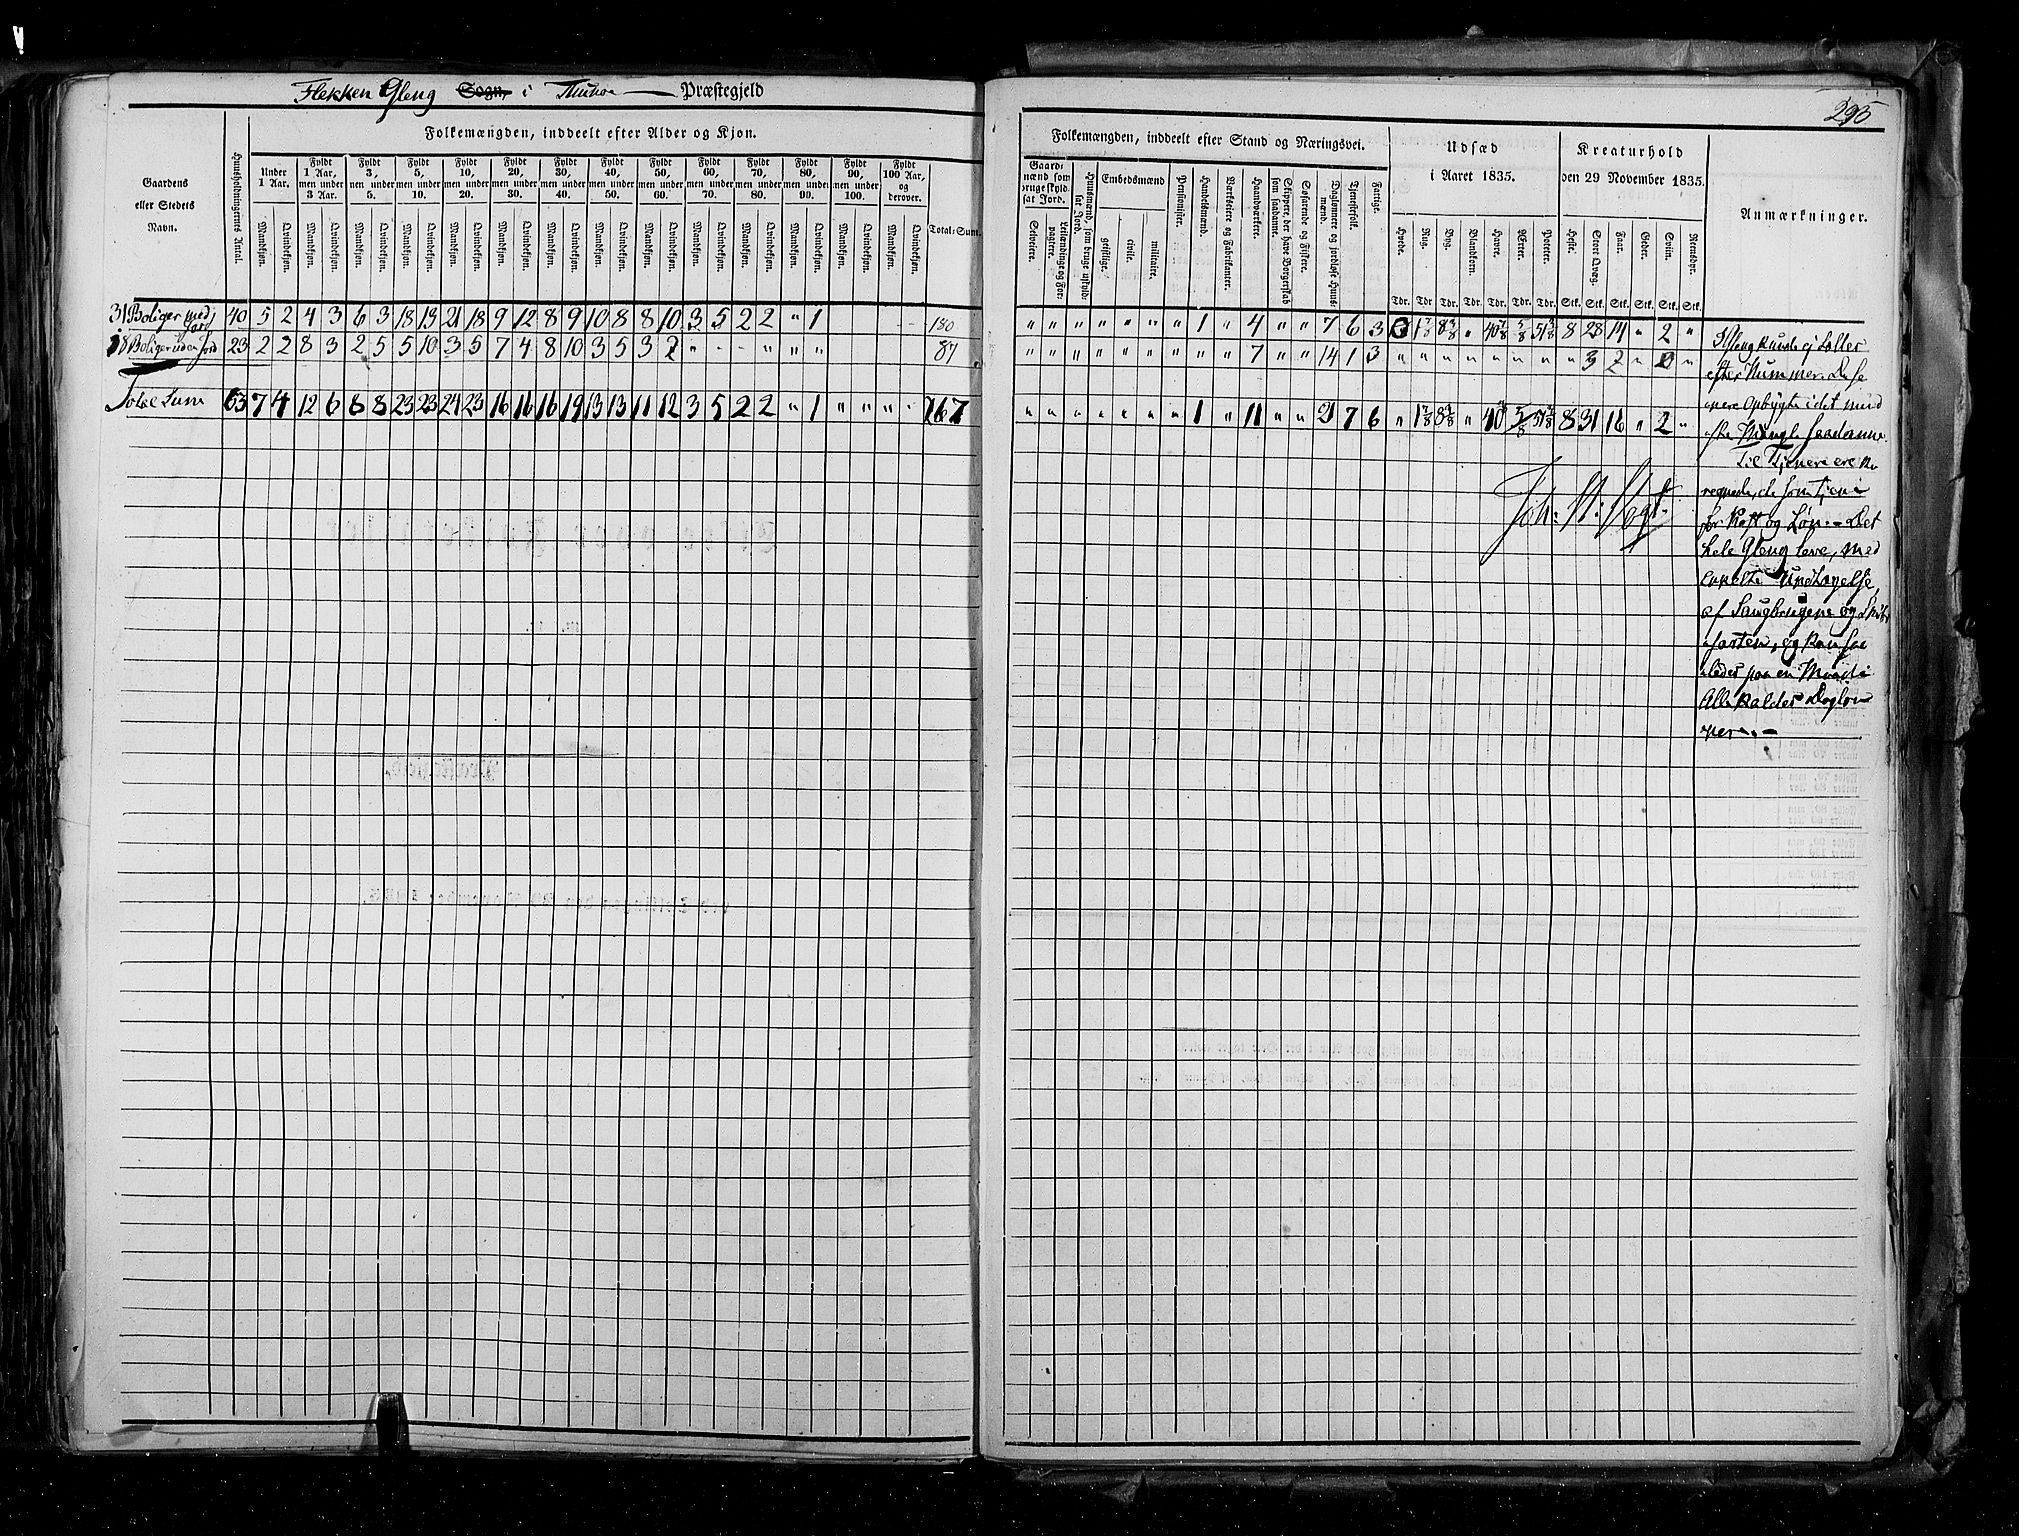 Flekken Gleng Sogn, i Thunoe Præstegjeld
295
Gaardens eller Stedets Navn.
Huusholdningernes Antal.
Folkemængden, inddeelt efter Alder og Kjøn.
Under 1 Aar.
Fyldt 1 Aar, men under 3 Aar.
Fyldt 3, men under 5.
Fyldt 5, men under 10.
Fyldt 10, men under 20.
Fyldt 20, men under 30.
Fyldt 30, men under 40.
Fyldt 40, men under 50.
Fyldt 50, men under 60.
Fyldt 60, men under 70.
Fyldt 70, men under 80.
Fyldt 80, men under 90.
Fyldt 90, men under 100.
Fyldt 100 Aar, og derover.
Mandkjøn. Qvindekjøn. Mandkjøn. Qvindekjøn. Mandkjøn. Qvindekjøn. Mandkjøn. Qvindekjøn. Mandkjøn. Qvindekjøn. Mandkjøn. Qvindekjøn. Mandkjøn. Qvindekjøn. Mandkjøn. Qvindekjøn. Mandkjøn. Qvindekjøn. Mandkjøn. Qvindekjøn. Mandkjøn. Qvindekjøn. Mandkjøn. Qvindekjøn. Mandkjøn. Qvindekjøn. Mandkjøn. Qvindekjøn.
Total-Sum.
31 Boliger med Jord 40 5 2 4 3 6 3 18 13 21 18 9 12 8 9 10 8 8 10 3 5 2 2 " 1 180
18 Boliger uden Jord 23 2 2 8 3 2 5 5 10 3 5 7 4 8 10 3 5 3 2 " " " " " " 87
Total Sum 63 7 4 12 6 8 8 23 23 24 23 16 16 16 19 13 13 11 12 3 5 2 2 " 1 " " " " 267
Folkemængden, inddeelt efter Stand og Næringsvei.
Gaardmænd som bruge skyldsat Jord.
Selveiere.
Leilændinge og Forpagtere.
Huusmænd, som bruge uskyldsat Jord.
Embedsmænd
geistlige.
civile.
militaire.
Pensionister.
Handelsmænd.
Værkseiere og Fabrikanter.
Haandværkere.
Skippere, der have Borgerskab som saadanne.
Søfarende og Fiskere.
Daglønnere og jordløse Huusmænd.
Tjenestefolk.
Fattige.
Udsæd
i Aaret 1835.
Hvede. Rug. Byg. Blandkorn. Havre. Ærter. Poteter.
Tdr. Tdr Tdr. Tdr. Tdr. Tdr. Tdr.
Kreaturhold
den 29 November 1835.
Heste. Stort Qvæg. Faar. Geder. Sviin. Rensdyr.
Stk. Stk. Stk. Stk. Stk. Stk.
Anmærkninger.
" " " " " " " 1 " 4 " " 7 6 3 1 7/8 8 3/8 " 40 7/8 5/8 51 3/8 8 28 14 " 2 "
" " " " " " " " " 7 " " 14 1 3 " " " " " " " " 3 2 " 0 "
" " " " " " " 1 " 11 " " 21 7 6 " 1 7/8 8 3/8 " 40 7/8 5/8 51 3/8 8 31 16 " 2 "
I Gleng kunde ej tælles
efter Nummer. Disse
ere opbygte i det mind
ste Mangle saadanne.
Til Tjenere ere be
regnede, de som tjene
for Kost og Løn. - Det
hele Gleng leve, med
enkelte Undtagelse
af Saugbrugene og
farten, og kan saa
ledes paa en Maade
Alle kaldes Dagløn
nere. -
Joh: St: Vogt